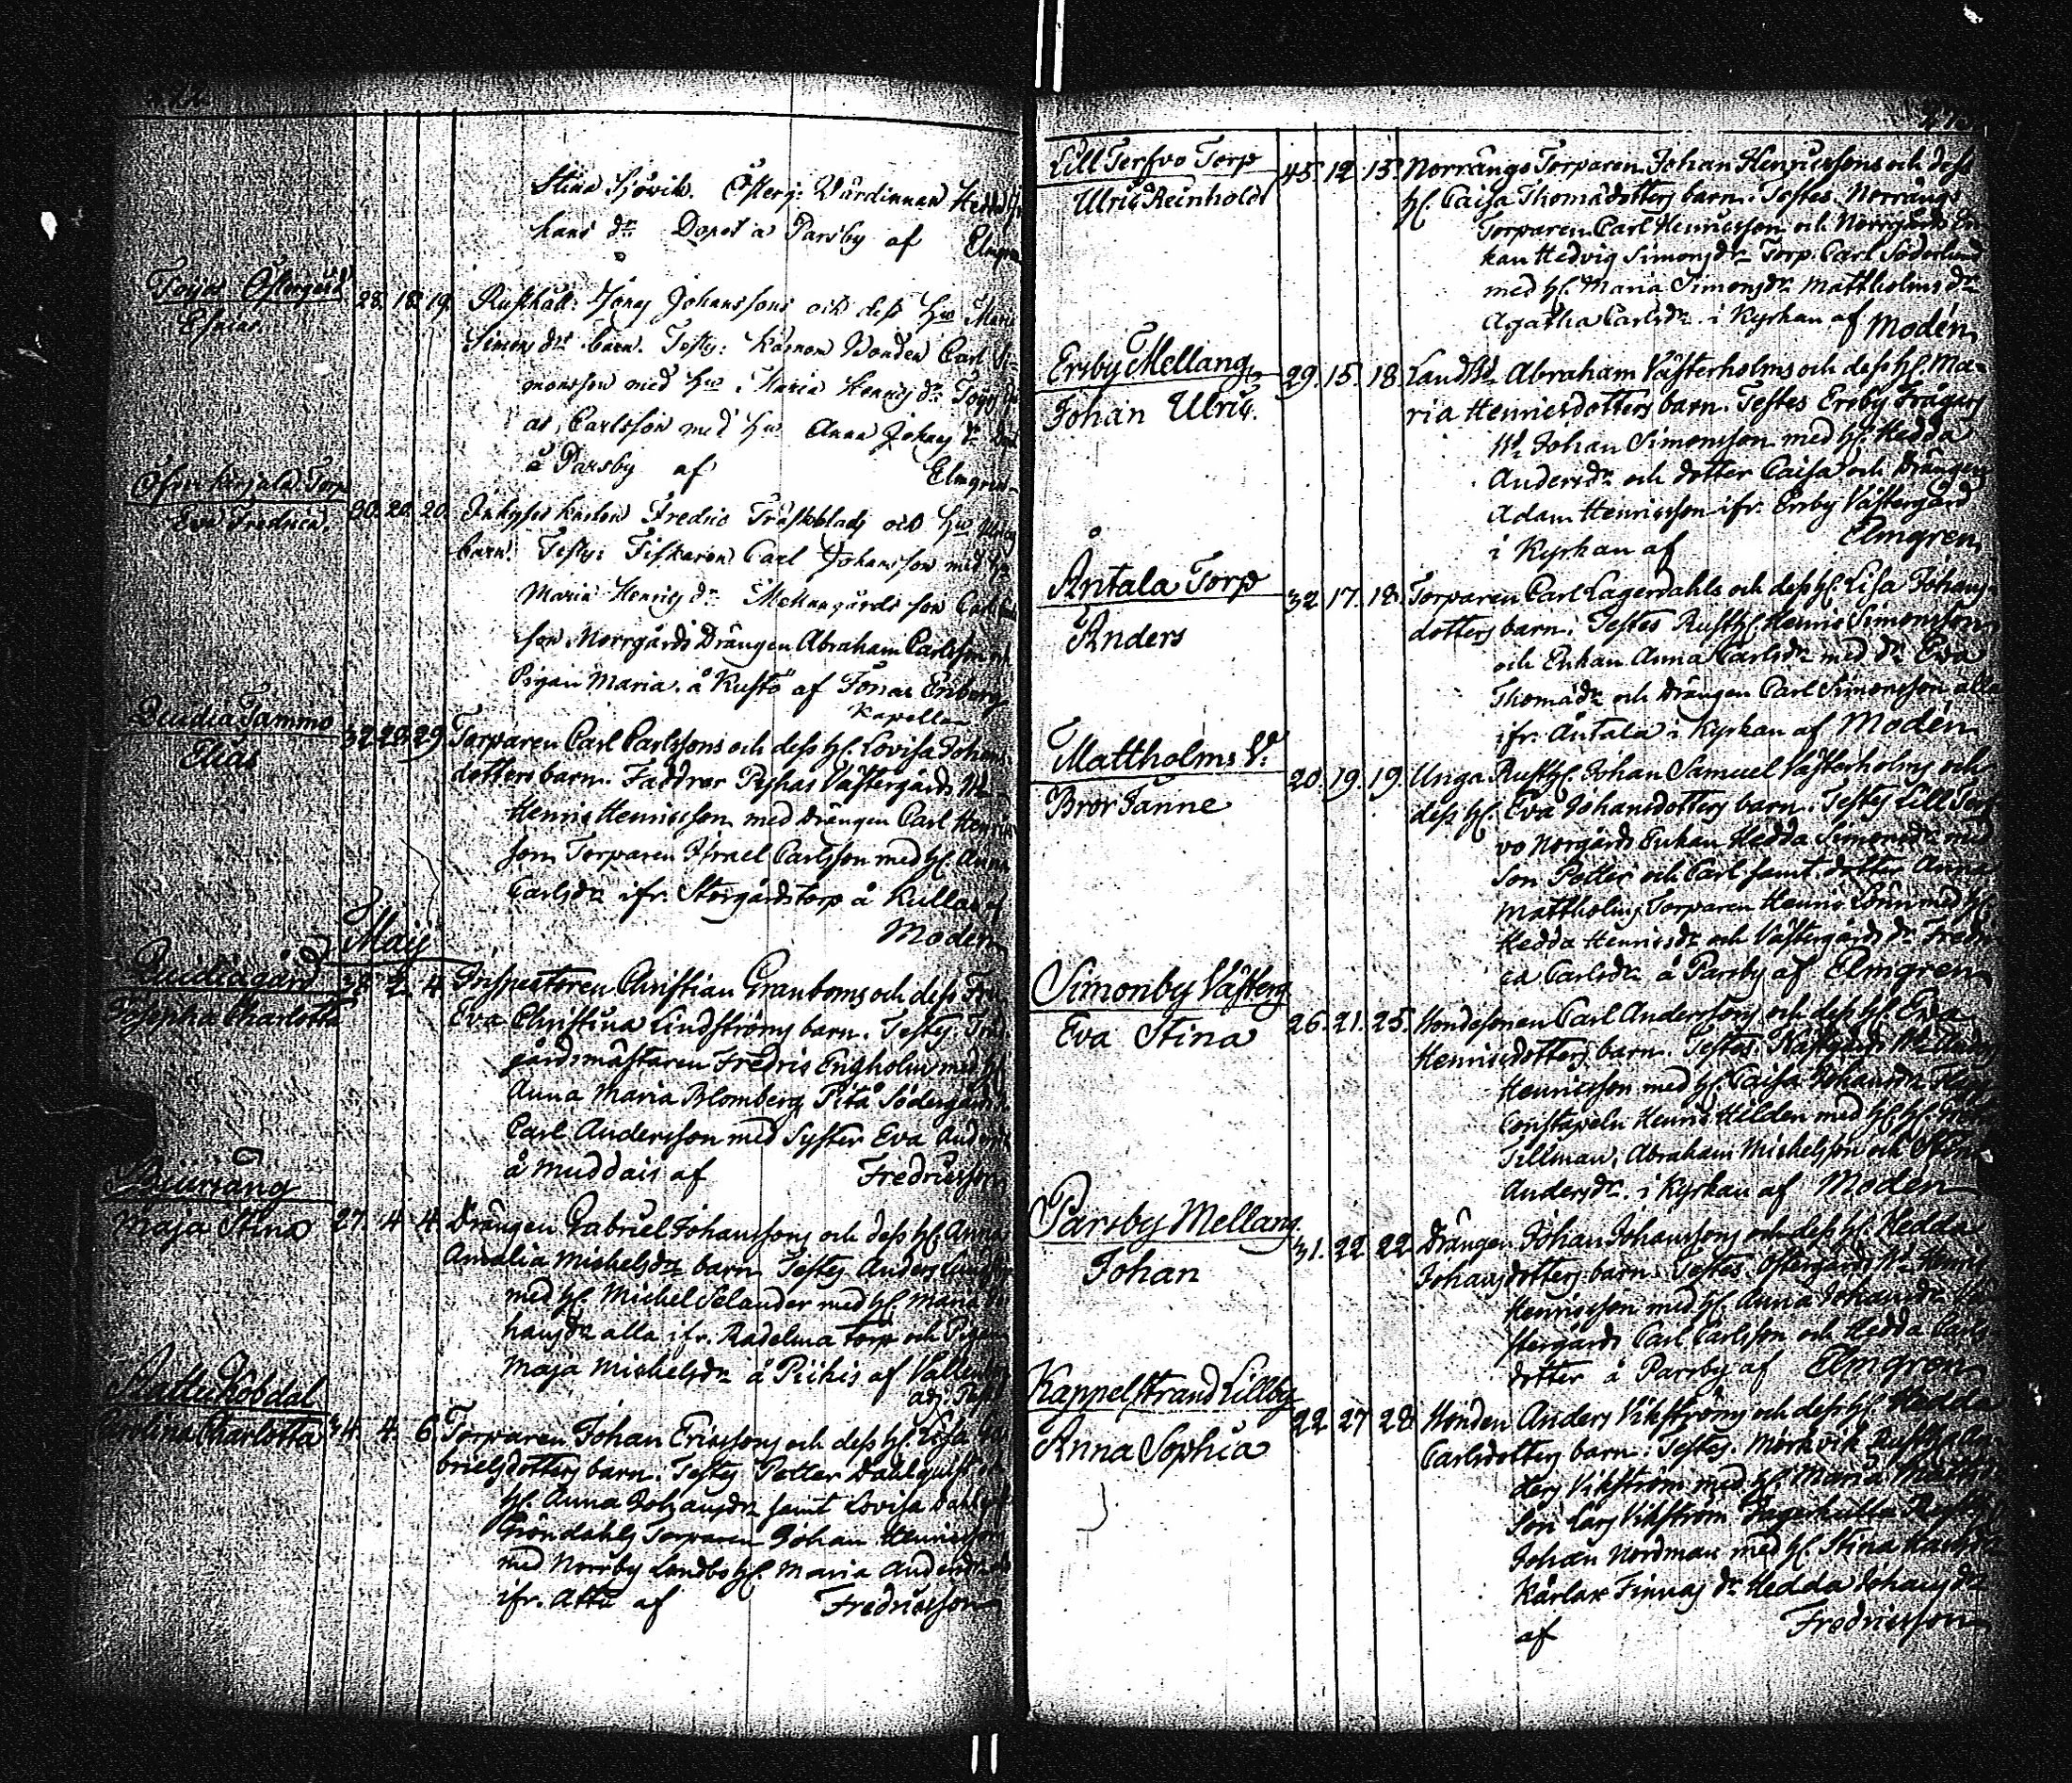 Stina Sjövik. Österg: Värdinnan Hedda
hans dr Döpet a Parsby af Elmgren
Östergård
Esaias
28. 18. 19. Rusthåll: Jonas Johanssons och dess Hu Maria
Simons drs barn. Testes: Bonden Carl Si-
monsson med Hu Maria Henrics dr
as Carlsson med Hu Anna Johans dr
å Parsby af Elmgren
Torp
Eva Fredrica.
30. 20. 20. Inhyses karlen Fredric Träskblads och Hu Marias
barn. Testes: Fiskaren Carl Johansson med Hu
Maria Henrics dr Mellangårds son Carl
son, Norrgårds Drängen Abraham Carlsson och
Pigan Maria. å Kustö af Jonas Enberg
Kapellan
Qvidia Tammo
Elias
32. 29. 29. Torparen Carl Carlssons och dess H. Lovisa Johans
dotters barn. Faddrar Västergårds
Henric Henricsson med Drängen Carl Henrics
son Torparen Israel Carlsson med H. Anna
Carlsdr ifr. Storgårdstorp å Kullas af
Moden
Maij
Qvidia gård
Josepha Charlotta
38. 2. 4. Inspectoren Christian Granboms och dess Fru
Eva Christina Lindströms barn. Testes Trä-
gårdsmästaren Fredric Engholm med H.
Anna Maria Blomberg, Pitå Södergårds
Carl Andersson med Syster Eva Anders
å Muddais af Fredricsson
Maja Stina
27. 4. 4. Drängen Gabriel Johanssons och dess H. Anna
Amalia Michelsdrs barn Testes Anders
med H. Michel Selander med H. Maria Jo-
hansdr alla ifr. Radelma torp och Pigan
Maja Michelsdr å Piikis af
adj. Past.
Attu Kobdal
Carolina Charlotta
34. 4. 6. Torparen Johan Ericssons och dess H. Lisa Ga-
brielsdotters barn. Testes Petter Dahlqvist
H. Anna Johansdr samt Lovisa
Gröndahls Torparen Johan Henricsson
med Norrby Landbs H. Maria Andersdr
ifr. Attu af Fredricsson
Lill Terfvo Torp
Ulric Reinhold
45. 12. 13. Norrängs Torparen Johan Henricssons och dess
H. Caisa Thomädotters barn. Testes Norrängs
Torparen Carl Henricsson och Norrgårds En-
kan Hedvig Simonsdr Torp. Carl Söderlund
med H. Maria Simonsdr Mattholms dr
Agatha Carlsdr i Kyrkan af Modén
Ersby Mellang.
Johan Ulric.
29. 15. 18. Landbd. Abraham Västerholms och dess H. Ma-
ria Henricsdotters barn. Testes Ersby
Wd Johan Simonsson med H. Hedda
Andersdr och dotter Caisa och Drängen
Adam Henricsson ifr. Ersby Västergård
i Kyrkan af Elmgren
Åntala Torp
Anders
32. 17. 18. Torparen Carl Lagerdahls och dess H. Lisa Johans
dotters barn. Testes Rusth. Henric Simonsson
och Enkan Anna Carlsdr med dr Eva
Thomädr och Drängen Carl Simonsson alla
ifr. Åntala i Kyrkan af Modén
Mattholms V.
Bror Janne
20. 19. 19. Unga Rusth. Johan Samuel Västerholms och
dess H. Eva Johansdotters barn. Testes Lill Terf
vo Norgårds Enkan Hedda Simonsdr med
Son Petter och Carl samt dotter Anna
Mattholms Torparen Henric Lönn med H.
Hedda Henricsdr och Västergårds dr Fredri
ca Carlsdr å Parsby af Elmgren
Simonby Västerg
Eva Stina
26. 21. 25. Bondesonen Carl Anderssons och dess H. Eva
Henricsdotters barn. Testes. Wd Anders
Henricsson med H. Caisa Johansdr
Constapeln Henric Hilden med H.
Tillman, Abraham Michelsson och Stina
Andersdr. i Kyrkan af Modén
Parsby Mellang.
Johan
31. 22. 22. Drängen Johan Johanssons och dess H. Hedda
Johansdotters barn. Testes Östergårds Wd Henric
Henricsson med H. Anna Johansdr Vä-
stergårds Carl Carlsson och Hedda Carls
dotter å Parsby af Elmgren
Kappelstrand Lillby
Anna Sophia
22 27 28. Bonden Anders Vikströms och dess H. Hedda
Carlsdotters barn. Testes. Mörkvik Rusth. An
ders Vikström med H. Maria Mattsdr
Son Lars Vikström
Johan Nordman med H. Stina
Kärlax Finnas dr Hedda Johansdr
af Fredricsson